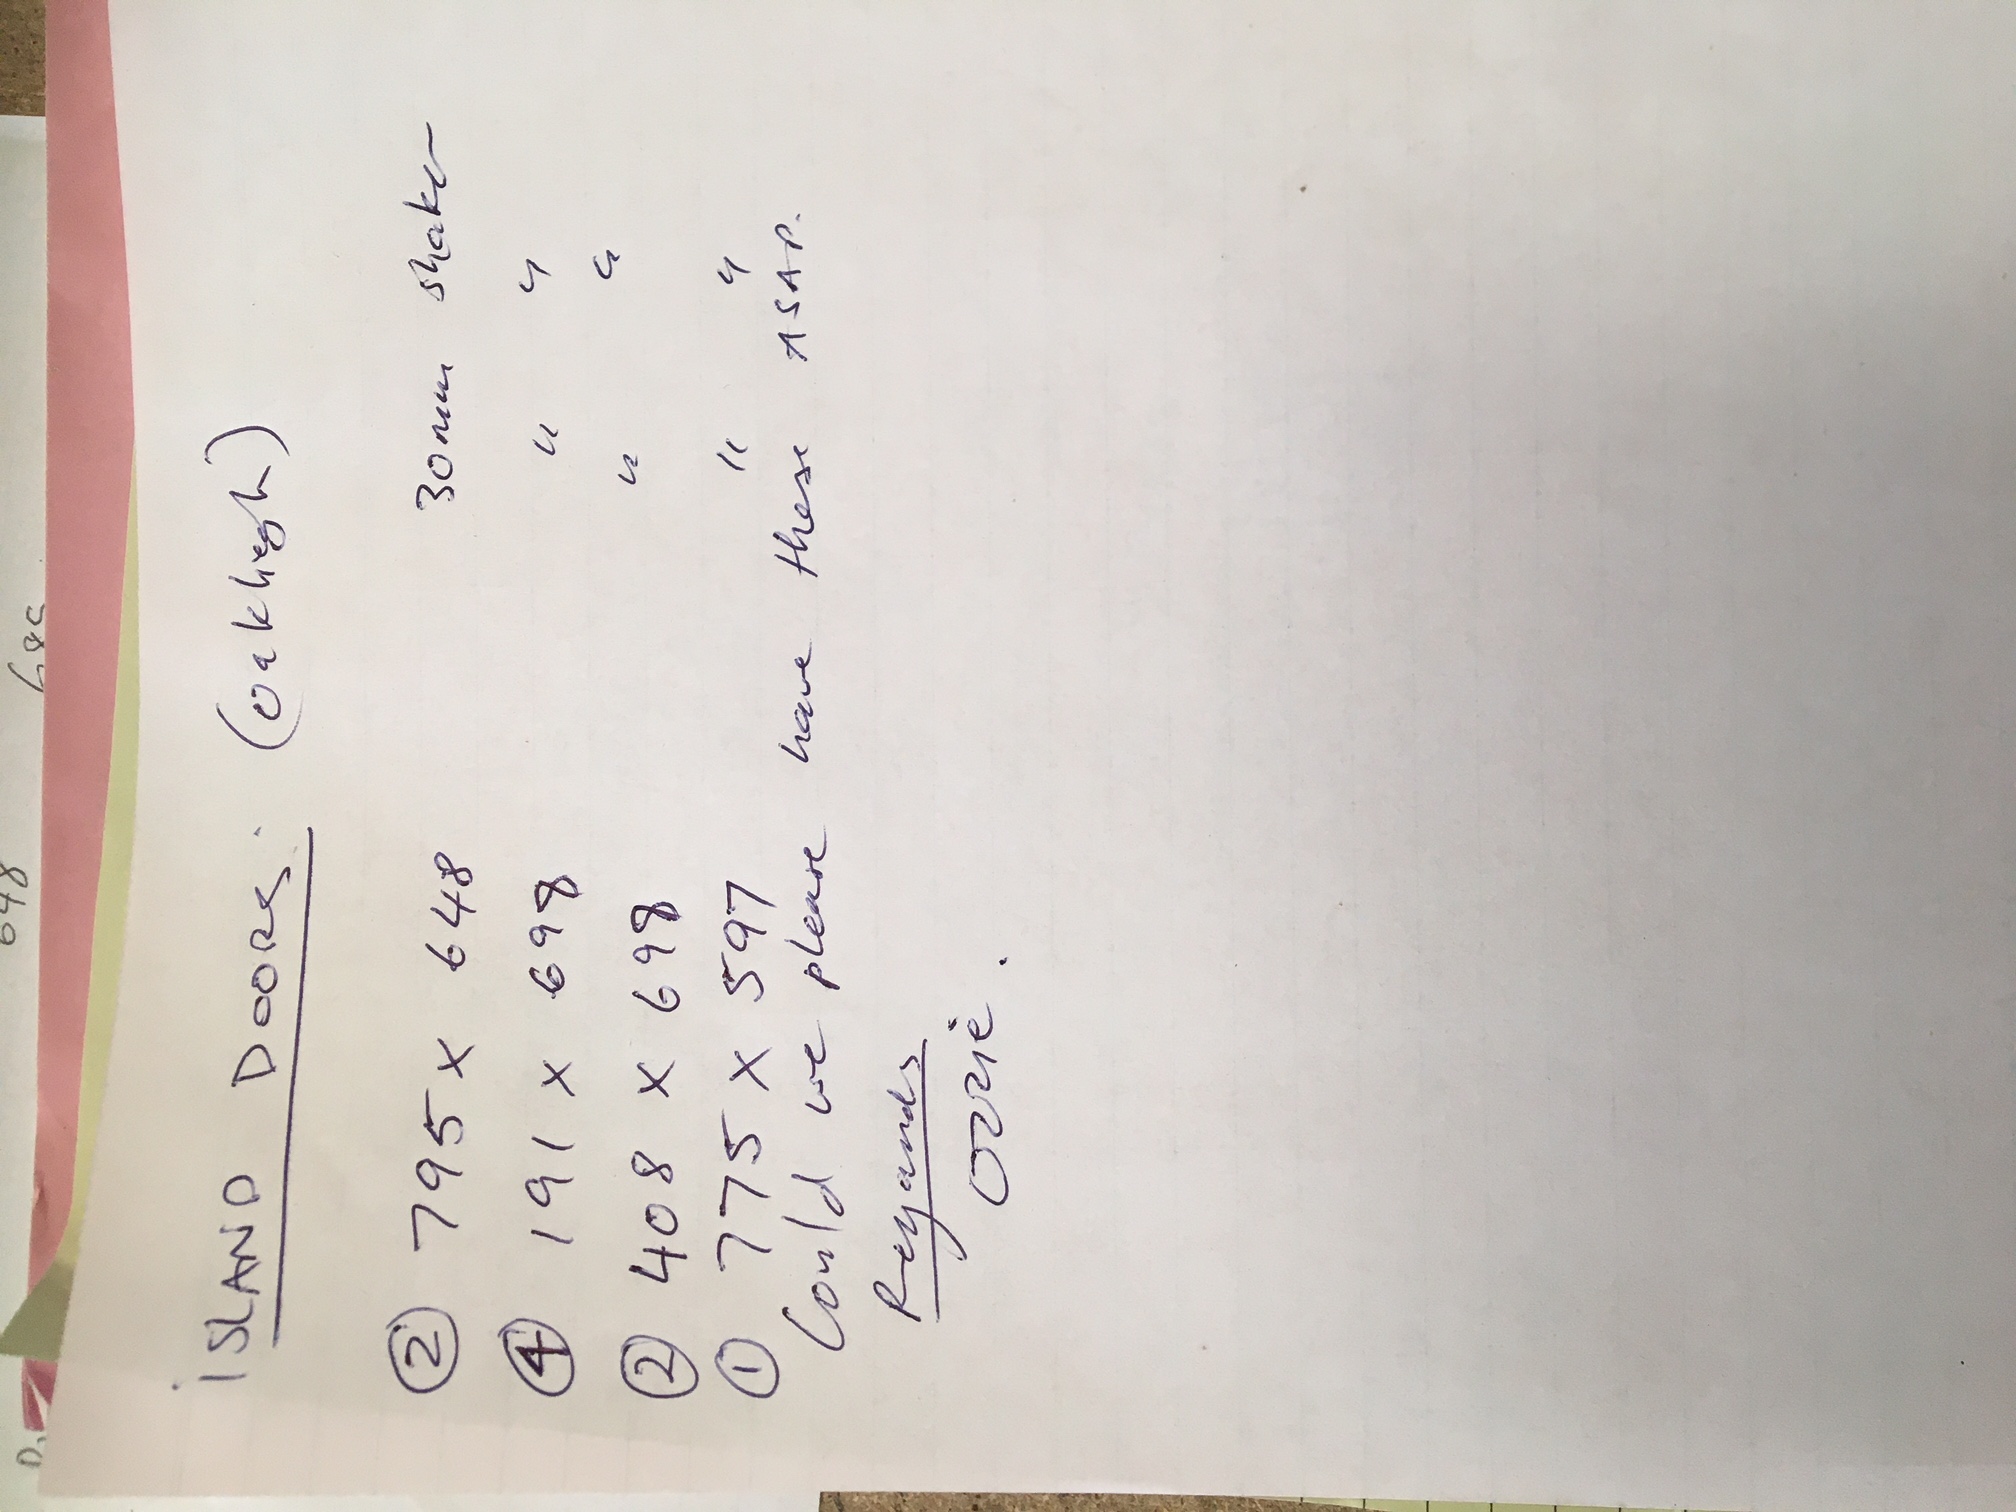 ISLAND DOORS. (oakleigh)
② 795 x 648 30mm shaker
④ 191 x 698 " "
② 408 x 698 " "
① 775 x 597 " "
Could we please have these ASAP.
Regards
Ozzie.
648